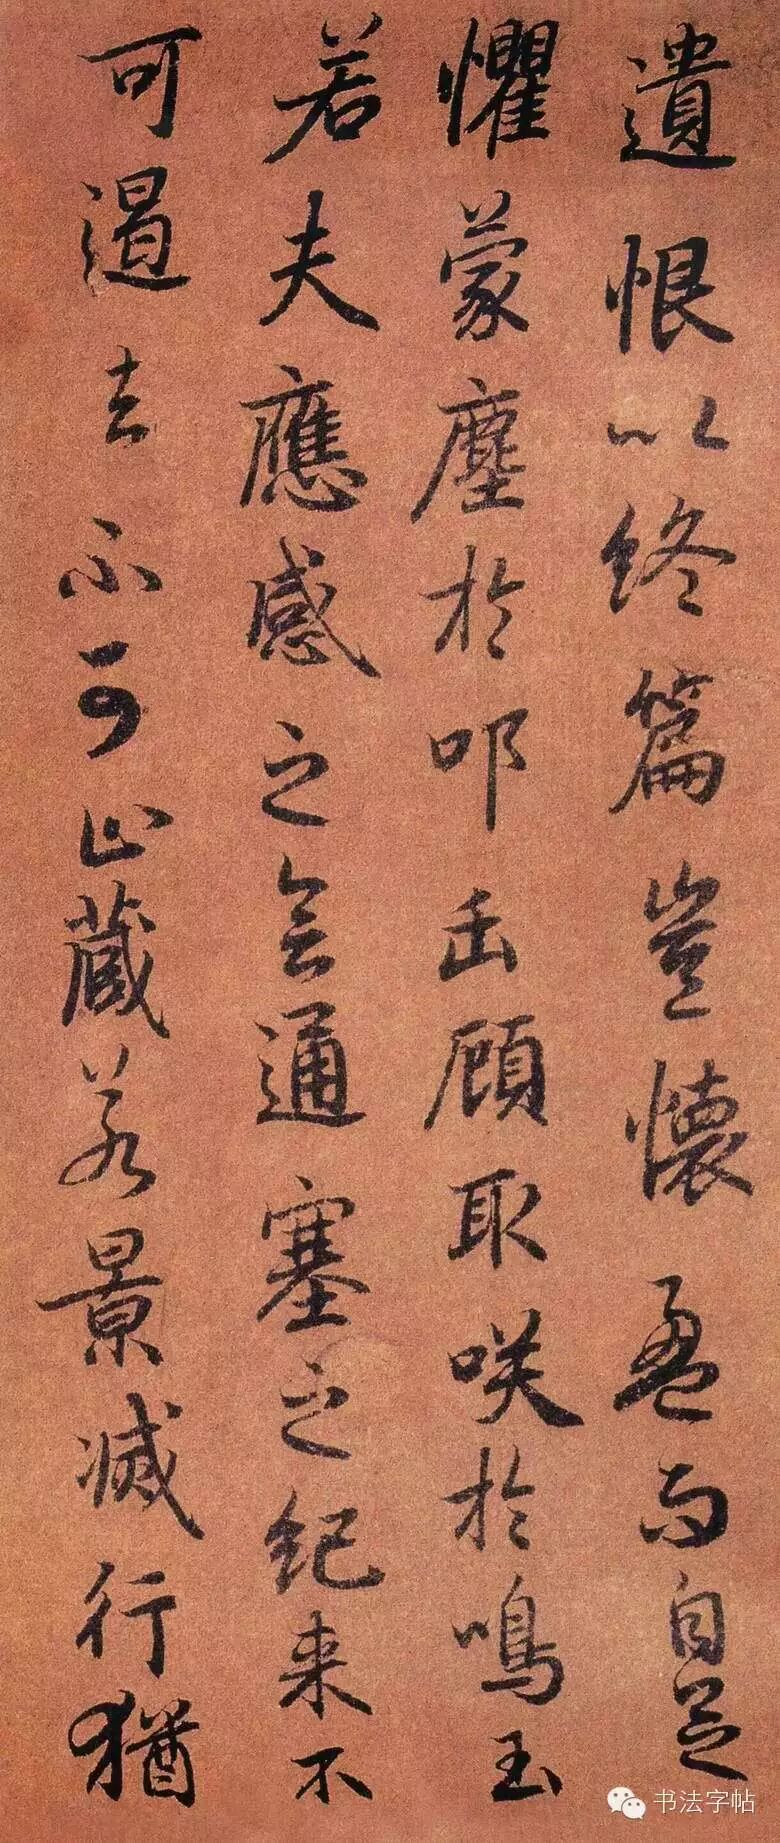 遺恨以終篇豈懷盈而自足
懼蒙塵於叩缶顧取咲於鳴玉
若夫應感之會通塞之紀来不
可遏去不可止藏若景滅行猶
书法字帖